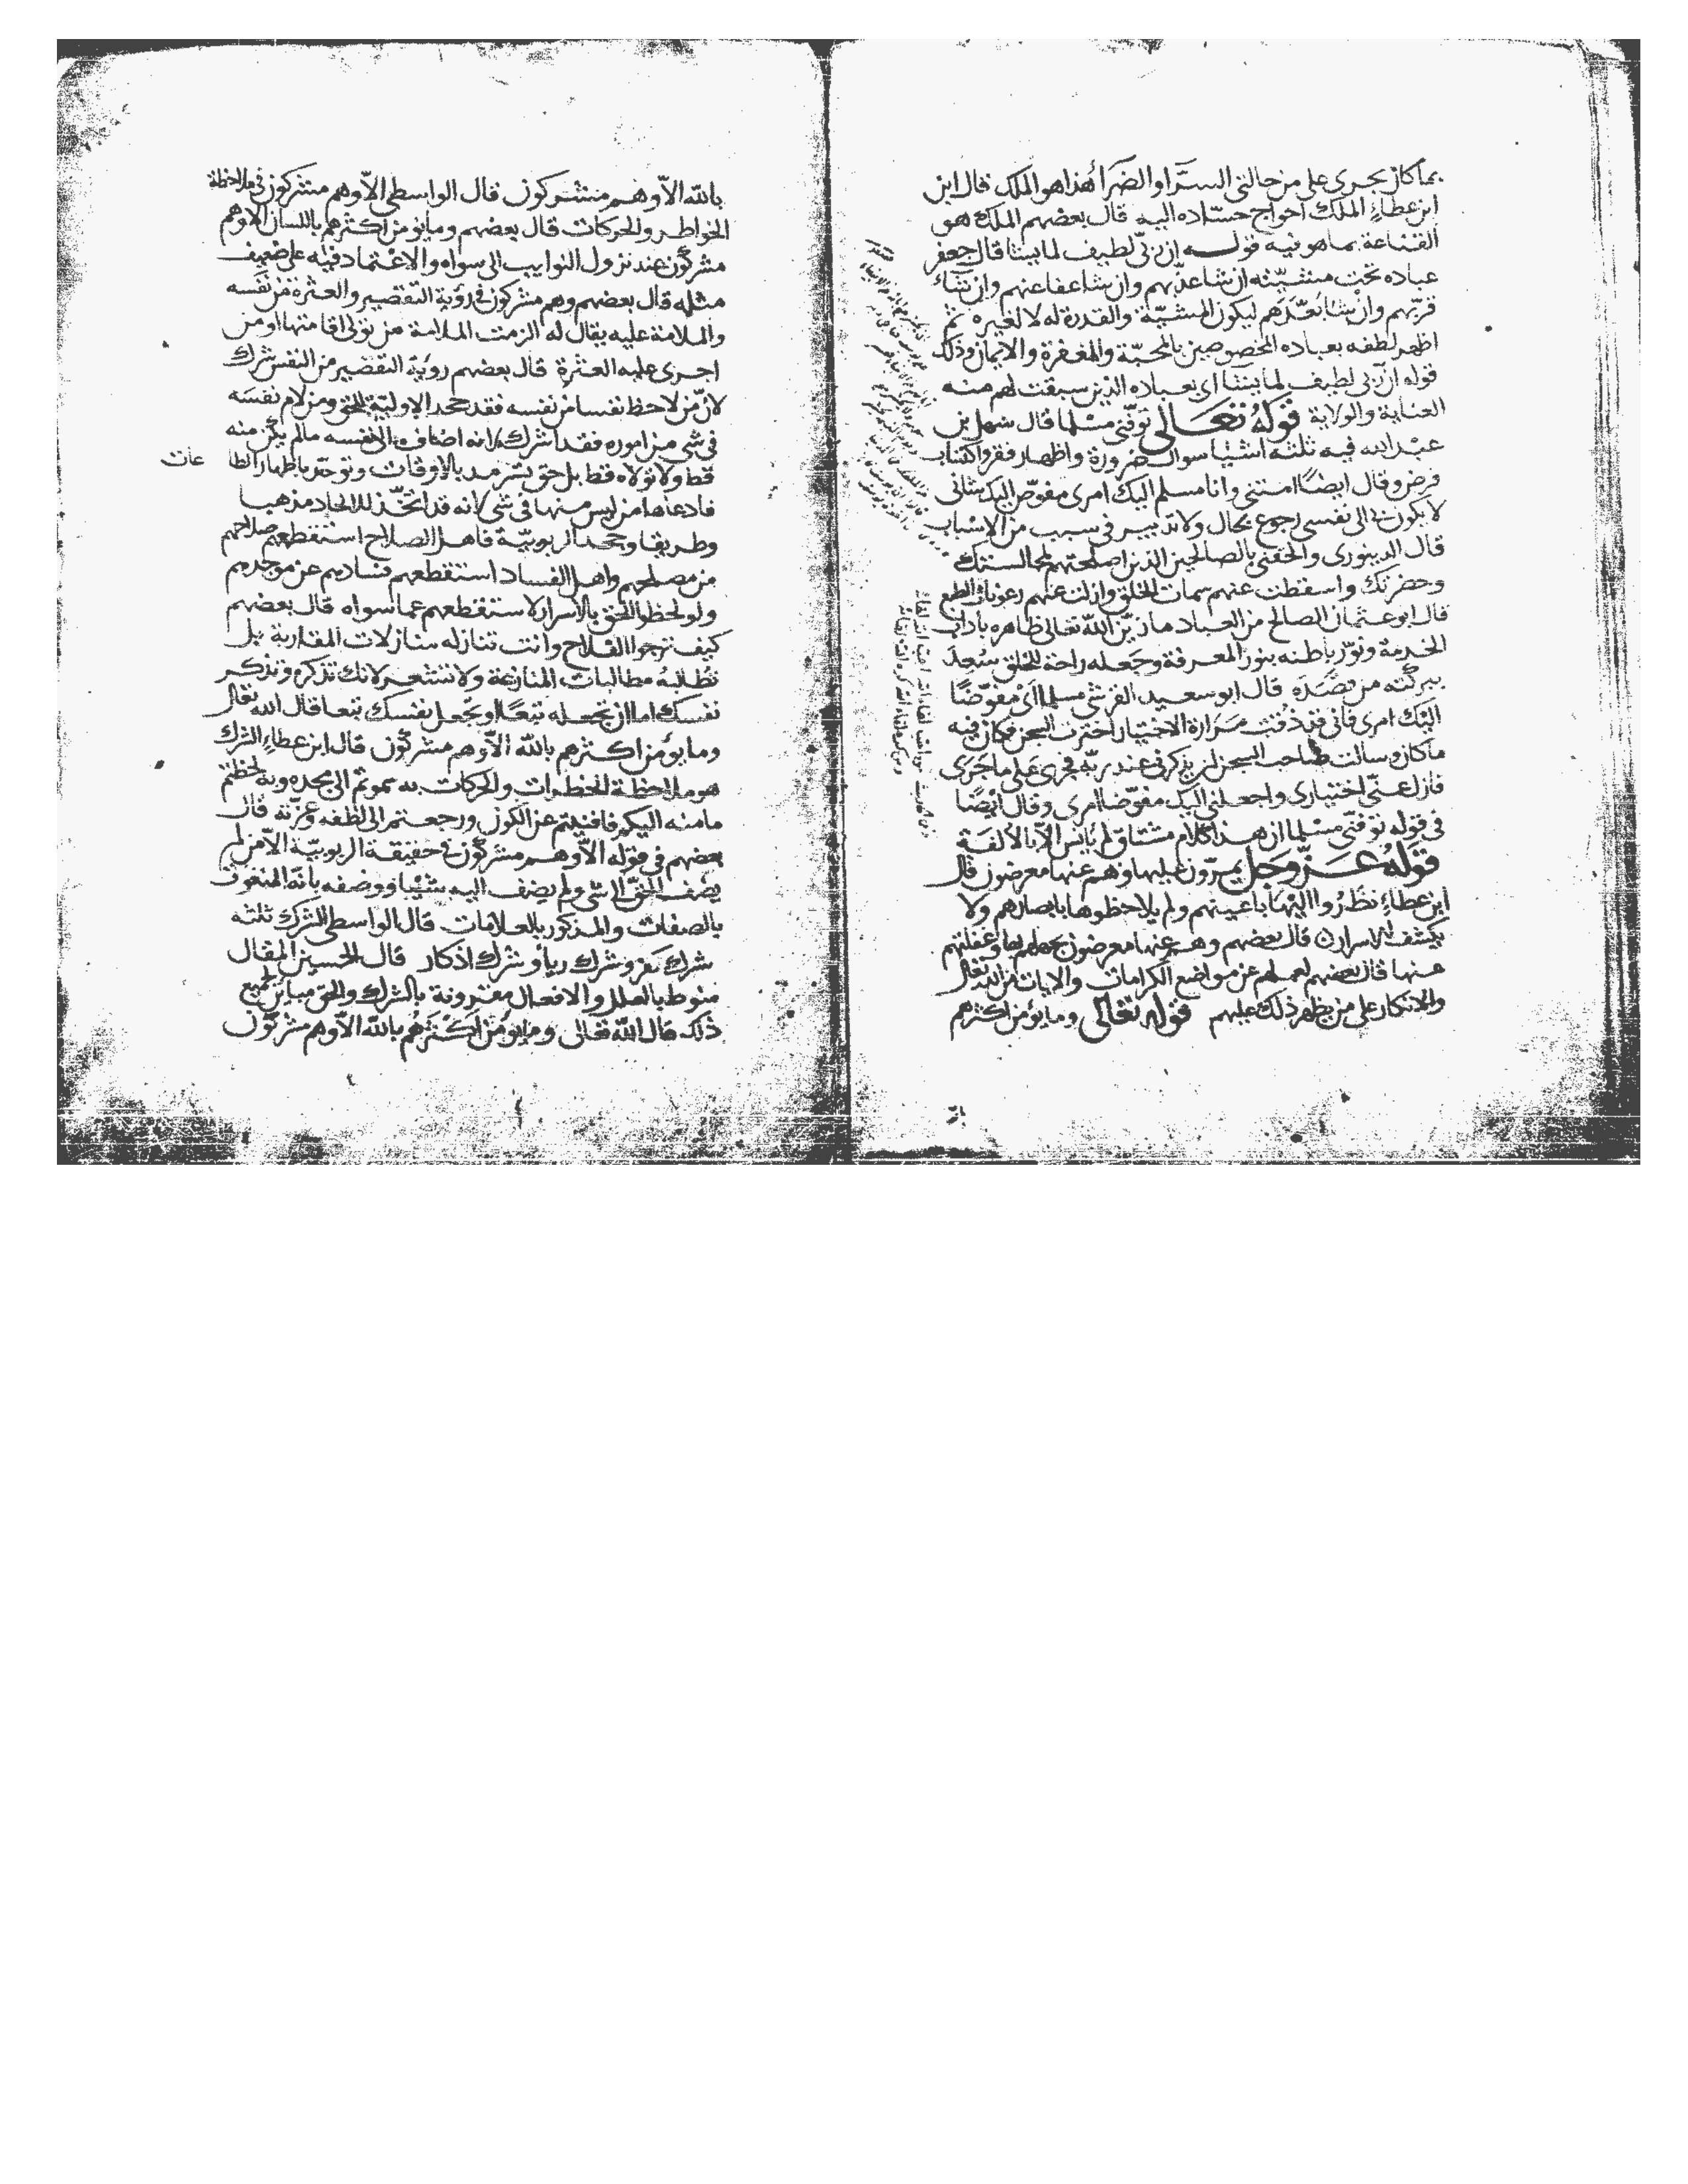 بما كان يجرى على من حالتى السرّا والضرا هذا هو الملك قال ابن
ابن عطاء الملك احواج حسّاده اليه قال بعضهم الملك هو
القناعة بما هو فيه قوله ان ربّى لطيف لما يشا قال جعفر
عباده تحت مشيّته ان شا عذّبهم وان شا عفا عنهم وان شاء
قرّبهم وان شا بعّدهم ليكون المشيّة والقدرة له لا لغيره ثم
اظهر لطفه بعباده المخصوصين بالمحبّة والمغفرة والايمان وذلك
قوله ان ربى لطيف لما يشا اى بعباده الذين سبقت لهم منه
العناية والولاية قوله تعالى توفّنى مسلما قال سهل بن
عبد الله فيه ثلثه اشيا سوال ضرورة واظهار فقر واكتساب
فرض وقال ايضًا امتنى وانا مسلم اليك امرى مفوّض اليك شانى
لا يكون لى الى نفسى رجوع بحال ولا تدبير فى سبب من الاسباب
قال الدينورى والحقنى بالصالحين الذين اصلحتهم لمجالستك
وحضرتك واسقطت عنهم سمات الخلق وازلت عنهم رعونات الطبع
قال ابو عثمان الصالح من العباد ما زيّن الله تعالى ظاهره باداب
الخدمة ونوّر باطنه بنور المعرفة وجعله راحة للخلق سُعِدَ
ببركته من قصَدَه قال ابو سعيد القرشى مسلما اى مفوّضًا
اليك امرى فانى قد ذُقت مَرَارة الاختيار اخترت السجن فكان فيه
ما كان وسالت صاحب السجن ان يذكرنى عند ربّه فجرى عَلى ما جَرَى
فازل عنّى اختيارى واجعلنى اليك مفوّضا امرى وقال ايضًا
فى قوله توفّنى مسلما ان هذا كلام مشتاق لم يأنس الّا بالألفة
قوله عزّ وجل يمرّون عليها وهم عنها معرضون قال
ابن عطاءٍ نظرُوا اليهَا باعينهم ولم يلاحظوها بابصارهم ولا
يكشف الاسرار قال بعضهم وهم عنها معرضون بجهلهم بها وغفلتهم
عنها قال بعضهم لعماهم عن مواضع الكرامات والايات من الله تعالى
والانكار على من يظهر ذلك عليهم قوله تعالى وما يؤمن اكثرهم
بالله الاّ وهم مشركون قال الواسطى الاّ وهم مشركون فى ملاحظة
الخواطر والحركات قال بعضهم وما يؤمن اكثرهم باللسان الا وهم
مشركون عند نزول النوايب الى سواه والاعتماد فيه على ضعيف
مثله قال بعضهم وهم مشركون فى رؤية التقصير والعثرة من نفسه
والملامة عليه يقال له الزمت الملامة من تولى اقامتها او من
اجرى عليه العثرة قال بعضهم رؤية التقصير من النفس شرك
لانّ من لاحظ نفسا من نفسه فقد جحد الاوليّة للحق ومن لام نفسَه
فى شى من اموره فقد اشرك لانه اضاف الى نفسه ما لم يكن منه
قط ولا تولاه قط بل حق تسَرمد بالاوقات وتوحّد باظهار الطا عات
فادعاها من ليس منها فى شى لانه قد اتخذ للالحاد مذهبا
وطريقا وجحد الربوبيّة فاهل الصلاح استقطعهم صلاحهم
من مصلحهم واهل الفساد استقطعهم فسادهم عن موجدهم
ولو لحظوا الحق بالاسرار لاستقطعهم عما سواه قال بعضهم
كيف ترجوا الفلاح وانت تنازله منازلات المقاربة بل
تُطلبهُ مطالبات المنازعة ولا تشعر لانك تذكره وتذكر
نفسك اما ان تجعله تبعًا او تجعل نفسك تبعا قال الله تعالى
وما يؤمن اكثرهم بالله الاّ وهم مشركون قال ابن عطاءٍ الشرك
هو ملاحظة الخطرات والحركات به سموتم الى مجده وبه لحظتم
ما منه اليكم فافنيتم عن الكون ورجعتم الى لطفه وعزّته قال
بعضهم فى قوله الاّ وهم مشركون فى حقيقة الربوبيّة الاّ من لم
يضف الحقّ الى شى ولم يضف اليه شيئا ووصفه بانّه المنعوت
بالصفات والمذكور بالعلامات قال الواسطى الشرك ثلثه
شرك كفر وشرك ريا وشرك اذكار قال الحسين المقال
منوط بالعلل والافعال مقرونة بالشرك والحق مباين لجميع
ذلك قال الله تعالى وما يؤمن اكثرهُم بالله الاّ وهم مشركون